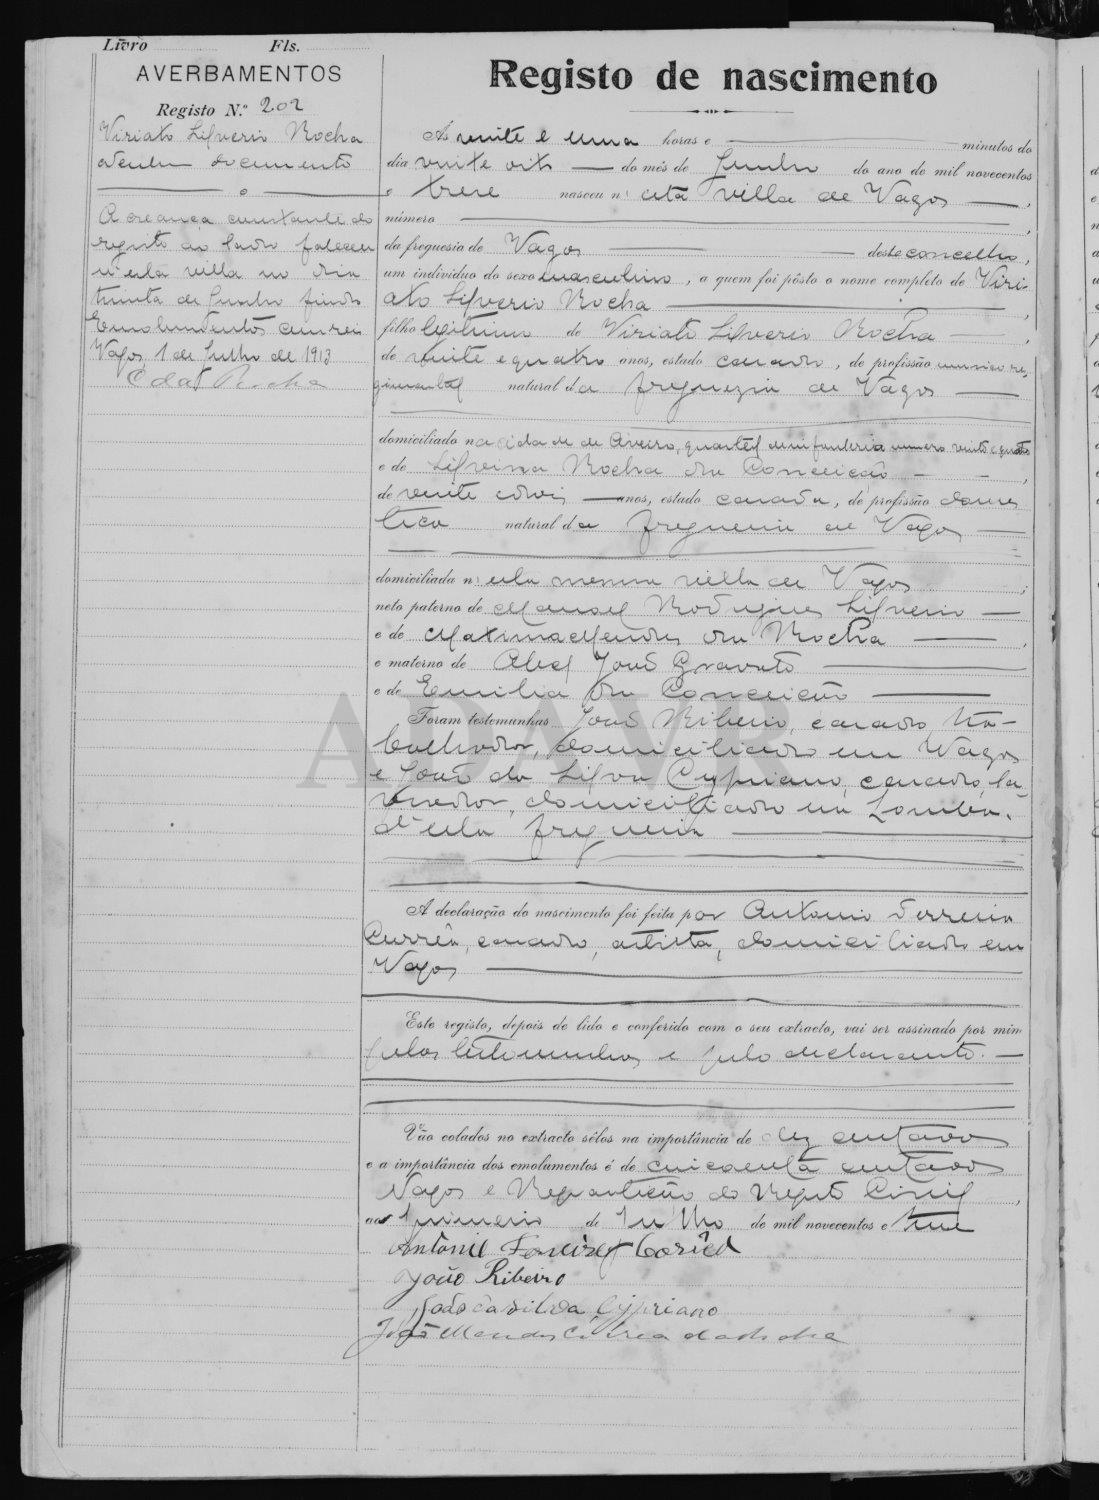 Livro Fls.
AVERBAMENTOS
Registo N.º 202
Viriato Silverio Rocha
documento
A creança constante do
registo ao lado faleceu
n'esta villa no dia
trinta de Junho findo
Emolumentos
Vagos, 1 de Julho de 1913
Rocha
Registo de nascimento
Ás vinte e uma horas e minutos do
dia vinte oito do mês de Junho do ano de mil novecentos
e treze nasceu n'esta villa de Vagos,
número
da freguesia de Vagos deste concelho,
um individuo do sexo masculino, a quem foi pôsto o nome completo de Viri-
ato Silverio Rocha
filho legitimo de Viriato Silverio Rocha
de vinte e quatro anos, estado casado, de profissão musico re-
gimental natural da freguezia de Vagos
domiciliado na cidade de Aveiro, quartel d'infanteria numero vinte e quatro
e de Silveina Rocha da Conceição
de vinte e dois anos, estado casada, de profissão domes
tica natural da freguezia de Vagos
domiciliada n'esta mesma villa de Vagos
neto paterno de Manuel Rodrigues Silverio
e de Maxima Mendes da Rocha
e materno de Abel José Gravato
e de Emilia da Conceição
Foram testemunhas João Ribeiro, casado tra-
balhador, domiciliado em Vagos
e João da Silva Cypriano, casado, la-
vrador, domiciliado em Lomba,
d'esta freguezia
A declaração do nascimento foi feita por Antonio Ferreira
Corrêa, casado, artista, domiciliado em
Vagos
Este registo, depois de lido e conferido com o seu extracto, vai ser assinado por mim
pelas testemunhas e pelo declarante.
Vão colados no extracto sêlos na importância de dez centavos
e a importância dos emolumentos é de cincoenta centavos
Vagos e Repartição do Registo Civil,
aos primeiro de Julho de mil novecentos e treze
Antonio Ferreira Corrêa
João Ribeiro
João da Silva Cypriano
João Mendes Corrêa da Rocha
ADAVR